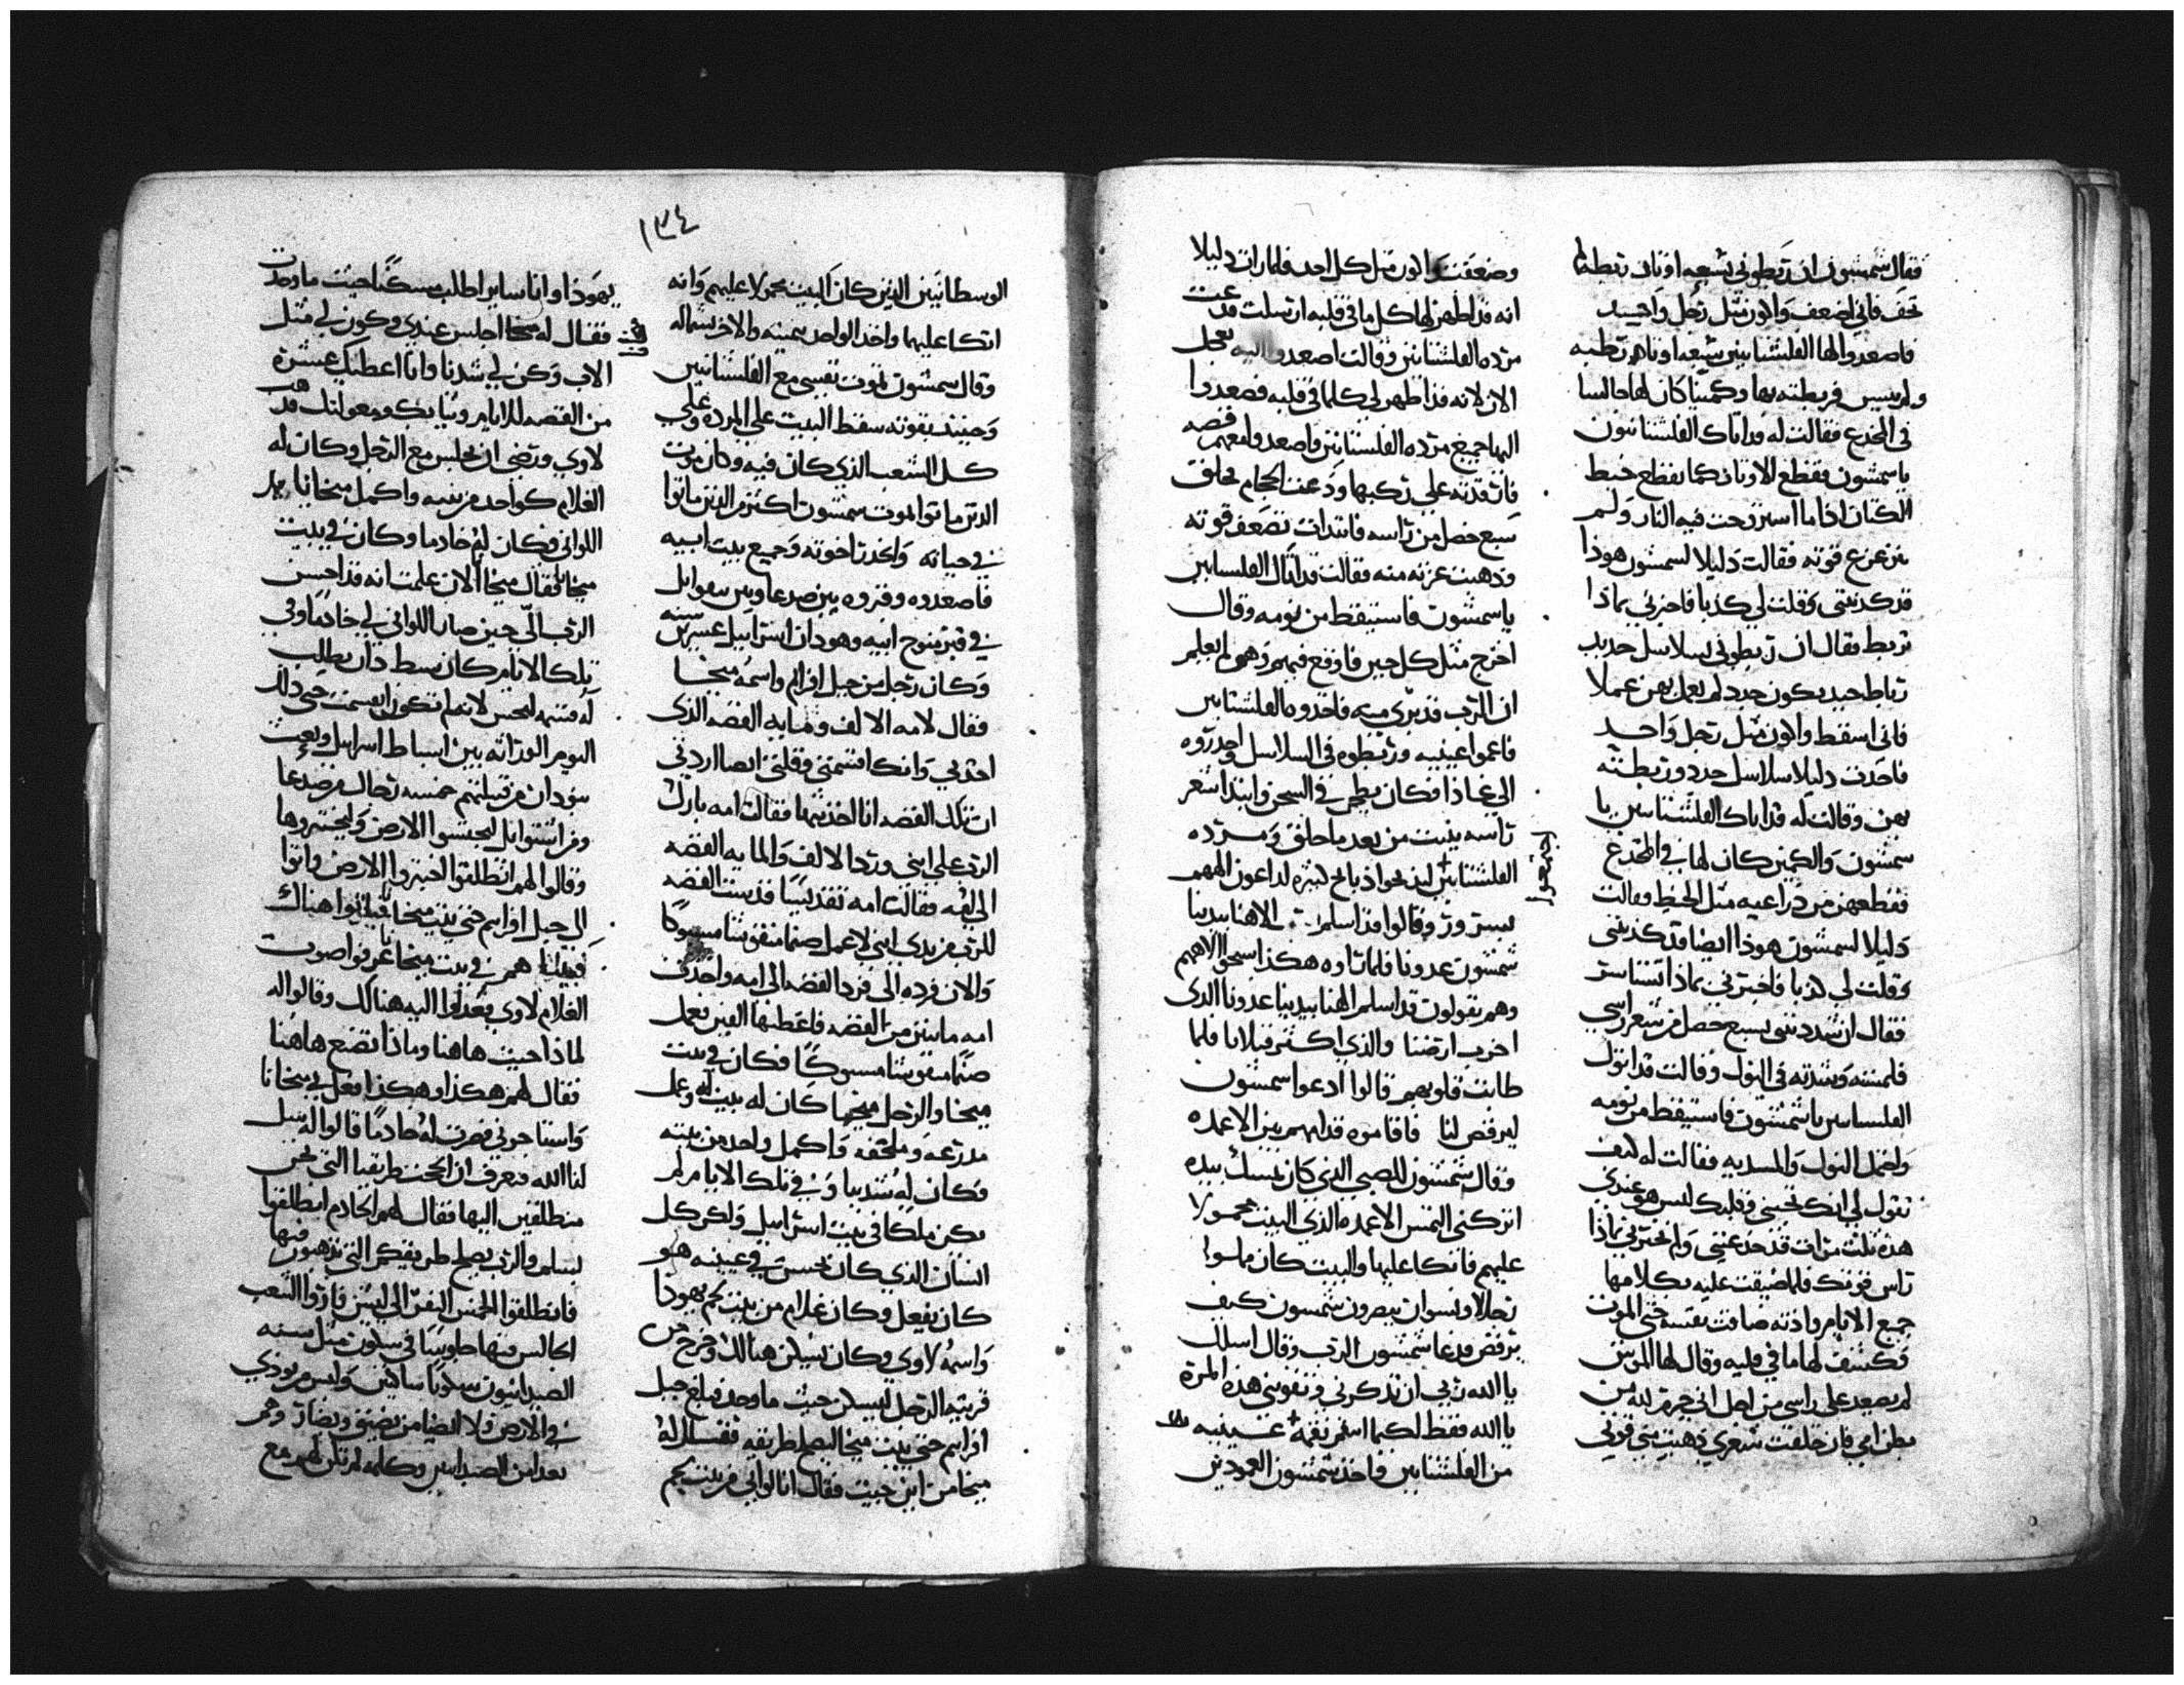 فقال سمشون ان ربطوني بسبعه اوتار رطبه لم
تجف فاني اضعف واكون مثل رجل واحد
فاصعدوا لها الفلشتانيين سبعه اوتار رطبه
ولم تيبس فربطته بها وكمينا كان لها جالسا
في المخدع فقالت له قد اتاك الفلشتانيون
ياسمشون فقطع الاوتار كما يقطع خيط
الكتان اذا ما استروحت فيه النار ولم
قوته فقالت دليلا لسمشون هوذا
قد كذبتني وقلت لي كذبا فاخبرني بماذا
تربط فقال ان ربطوني بسلاسل حديد
يكون جدد لم يعمل بهن عملا
فاني اسقط واكون مثل رجل واحد
فاخذت دليلا سلاسل جدد وربطته
بهن وقالت له قد اتاك الفلشتانيين يا
سمشون والكمين كان لها في المخدع
فقطعهن من ذراعيه مثل الخيط وقالت
دليلا لسمشون هوذا ايضا قد كذبتني
وقلت لي كذبا فاخبرني بماذا
فقال ان شددتني بسبع خصل من شعر راسي
وشدته في النول وقالت قد اتوك
الفلسانيين ياشمشون فاستيقظ من نومه
النول والمسديه فقالت له كيف
تقول لي انك تحبني وقلبك ليس هو عندي
هذه ثلث مرات قد خدعتني ولم تخبرني بماذا
راس قوتك فلما ضيقت عليه بكلامها
جميع الايام واذته ضاقت نفسه حتى الموت
فكشف لها ما في قلبه وقال لها الموس
لم يصعد على راسي من اجل اني لله من
بطن امي فان حلقت شعري ذهبت مني قوتي
وضعفت واكون مثل كل احد فلما رات دليلا
انه قد اظهر لها كل ما في قلبه ارسلت فدعت
مرده الفلشتانيين وقالت اصعدوا اليه بعجل
الان لانه قد اظهر لي كلما في قلبه فصعدوا
اليها جميع مرده الفلستانيين واصعدوا معهم فضه
فارقدته على ركبها ودعت الحجام فحلق
سبع خصل من راسه فابتدات تضعف قوته
وذهبت عزته منه فقالت قد اتاك الفلسانيين
ياسمشون فاستيقظ من نومه وقال
اخرج مثل كل حين فاوقع فيهم وهو لم يعلم
ان الرب قد بري منه فاخذوه الفلشتانيين
فاعموا عينيه وربطوه في السلاسل واحدروه
الى غازا فكان يطحن في السجن وابتدا شعر
راسه ينبت من بعد ما حلق ومرده
الفلشتانيين ليذبحوا ذبايح كثيره لداعون الههم
اجتمعوا
بسرور وقالوا قد اسلم الاهنا بيدينا
شمشون عدونا فلما راوه هكذا سبحوا لالاههم
وهم يقولون قد اسلم الهنا بيدينا عدونا الذي
اخرب ارضنا والذي اكثر قتلانا فلما
طابت قلوبهم قالوا ادعوا سمشون
ليرقص لنا فاقاموه قدامهم بين الاعمده
وقال شمشون للصبي الذي كان يمسك بيده
اتركني التمس الاعمده الذي البيت محمولا
عليهم فاتكا عليها والبيت كان مملوا
رجالا ونسوان يبصرون شمسون كيف
يرقص فدعا شمشون الرب وقال اسلك
يا الله ربي ان تذكرني وتقويني هذه المرة
يا الله فقط لكيما انقم نقمة عينيه
من الفلشتانيين فاخذ شمشون العمودين
١٣٤
الوسطانيين الذين كان البيت محمولا عليهم وانه
اتكا عليهما واخذ الواحد بيمينه والاخر بشماله
وقال سمشون تموت نفسي مع الفلشتانيين
وحينئذ بقوته سقط البيت على المرده وعلى
كل الشعب الذي كان فيه وكان موت
الذين ماتوا لموت سمشون اكثر من الذين ماتوا
في حياته واتحدرتا خوته وجميع بيت ابيه
فاصعدوه وقبروه بين صدعا وبين
في قبر منوح ابيه وهو دان اسراييل عشرين سنه
وكان رجل من جبل افرام واسمه ميخا
فقال لامه الالف ومايه الفضه الذي
اخذتي وانك اقسمتي وقلتي ايضا اردتي
ان تلك الفضه انا اخذتها فقالت امه بارك
الرب على ابني ورد الالف والمايه الفضه
الى امه فقالت امه تقديسا قدست الفضه
للرب من يدي ابني لاعمل صنما منقوشا مسبوكا
والان فرده الى فرد الفضه الى امه واخذت
امه مايتين من الفضه فاعطتها القين فعمل
صنما منقوشا مسبوكا فكان في بيت
ميخا والرجل ميخا كان له بيت اله وعمل
مدرعه وملحفه واكمل واحد من بنيه
فكان له شنديبا وفي تلك الايام لم
يكن ملكا في بيت اسراييل ولكن كل
انسان الذي كان يحسن في عينيه هو
كان يفعل وكان غلام من بيت لحم يهوذا
واسمه لاوي وكان يسكن هنالك وخرج من
قريته الرجل ليسكن حيث ما وجد فبلغ جبل
افرام حتى بيت ميخا ليصلح طريقه فقال له
ميخا من اين جيت فقال انا لوابي من بيت لحم
يهوذا وانا ساير اطلب مسكنا حيث ما وجدت
فقال له ميخا اجلس عندي وكون لي مثل
الاب وكن لي شدنا وانا اعطيك عشرة
من الفضه للايام وثيابك ومعولتك فذهب
لاوي ورضي ان يجلس مع الرجل وكان له
الغلام كواحد من بنيه واكمل ميخا يد
اللواني وكان له خادما وكان في بيت
ميخا فقال ميخا الان علمت انه قد احسن
الرب الي حين صار اللواني لي خادما وفي
تلك الايام كان سبط دان يطلب
له قسمه ليحبس لانه لم تكون له قسمت حتى ذلك
اليوم الوراثه بين اسباط اسراييل وبعث
بنو دان من قبيلتهم خمسه رجال من صدعا
ومن ايشتوايل ليجسوا الارض وليختبروها
وقالوا لهم انطلقوا اختبروا الارض واتوا
الى جبل افرام حتى بيت ميخا فباتوا هناك
فبينما هم في بيت ميخا عرفوا صوت
الغلام لاوي فعدلوا اليه هنالك وقالوا له
لماذا جيت هاهنا وماذا تصنع هاهنا
فقال لهم هكذا وهكذا فعل بي ميخا نا
واستاجرني فصرت له خادما قالوا له سل
لنا الله فنعرف ان انجحت طريقنا التي نحن
منطلقين اليها فقال لهم الخادم انطلقوا
بسلم والرب يصلح طريقكم التي تذهبون فيها
فانطلقوا الخمس النفر الى ليش فاروا الشعب
الجالس فيها جلوسا في سكون مثل سنه
الصيدانيون سكوتا ساكنين وليس من يوذي
في الارض ولا ايضا من يضيق ويضار وهم
بعد من الصيدانيين وكلمه لم تكن لهم مع